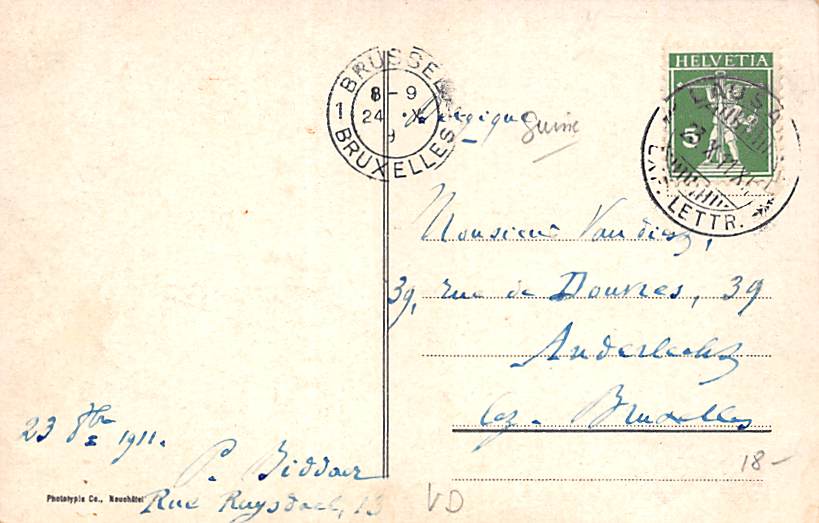 HELVETIA
5
BRUSSEL
1 8-9
24 X
BRUXELLES
LAUSA
23 X 11 XI
LETTR.
Belgique
Suisse
Monsieur Vandiest,
39, rue de Douvres, 39
Anderlecht
lez-Bruxelles
23 8bre 1911.
P. Biddaer
Rue Ruysdael, 13
Phototypie Co., Neuchâtel
VD
18-